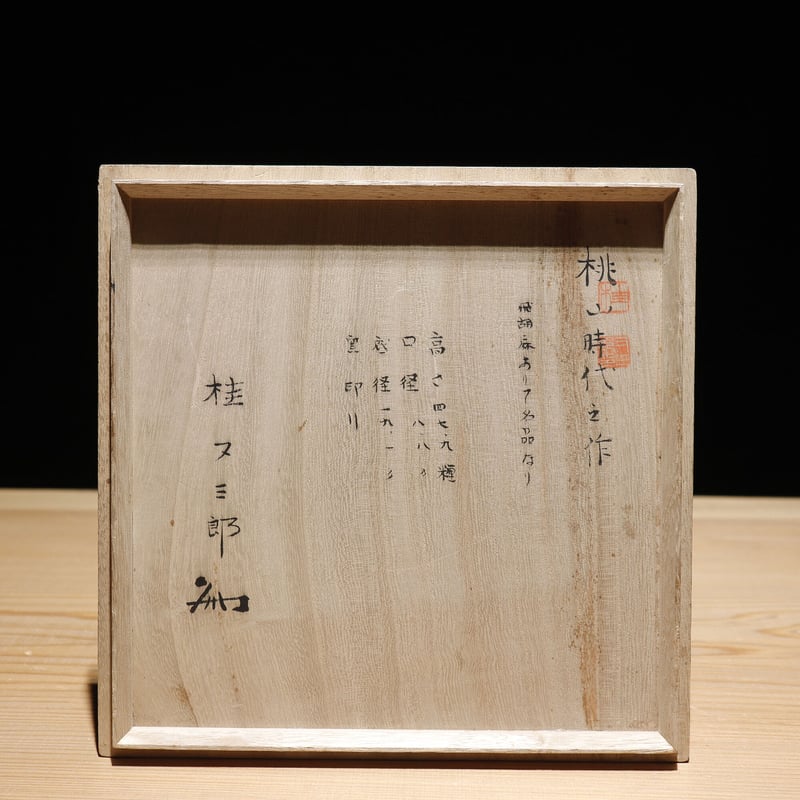 桃山時代之作
飛胡麻ありて名品なり
高さ四七.九糎
口径 八.八〃
底径一九.一〃
窯印
桂又三郎